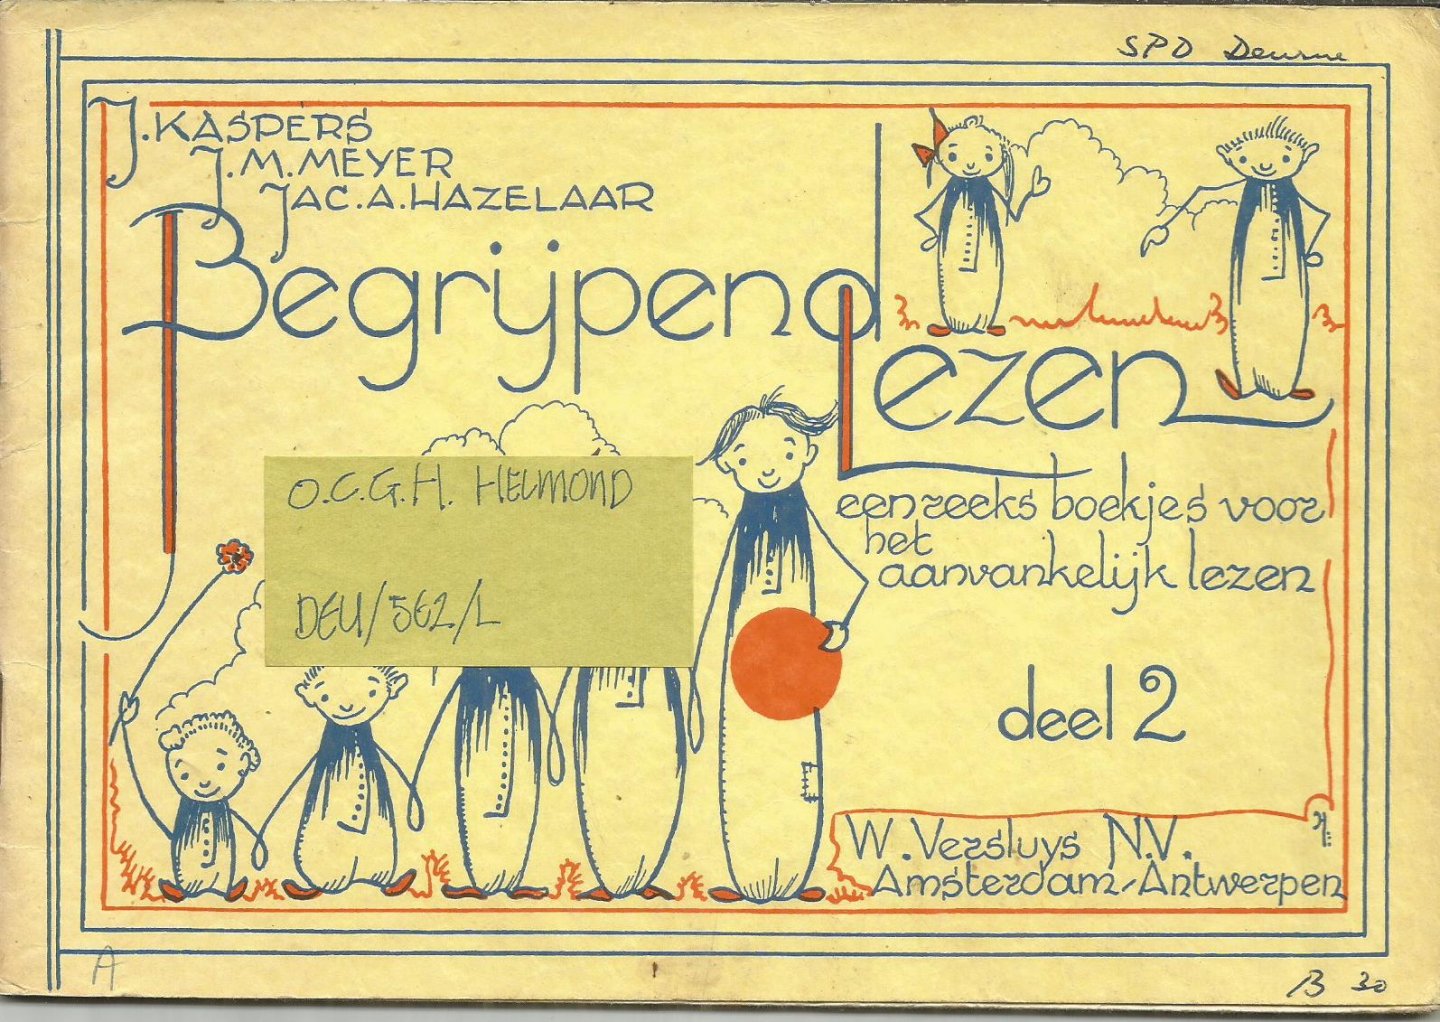 SPD Deurne
J. KASPERS
J. M. MEYER
JAC. A. HAZELAAR
Begrijpend
Lezen
een reeks boekjes voor
het
aanvankelijk lezen
O.C.G.H. HELMOND
DEU/562/L
deel 2
W. Versluys N.V.
Amsterdam-Antwerpen
A
B 30